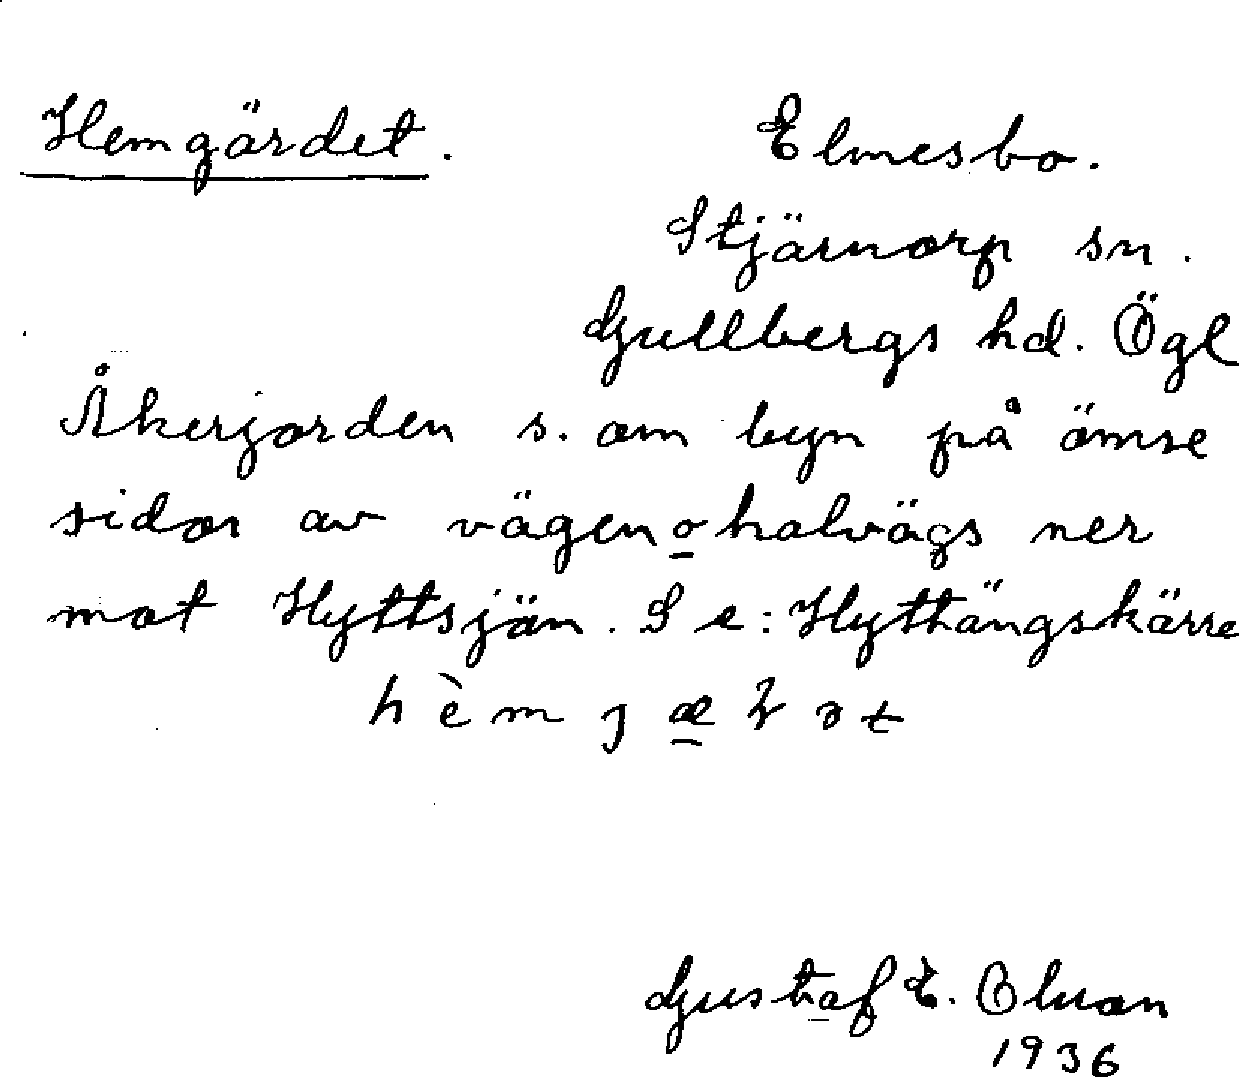 Hemgärdet. Elmesbo.
Stjärnorp sn.
Gullbergs hd. Ögl
Åkerjorden s. om byn på ömse
sidor av vägen o halvägs ner
mot Hyttsjön. Se: Hythängskärre
Gustaf E. Olson
1936